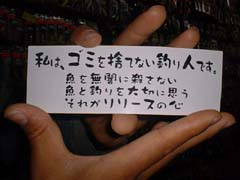 私は、ゴミを捨てない釣り人です。
魚を無闇に殺さない
魚と釣りを大切に思う
それがリリースの心